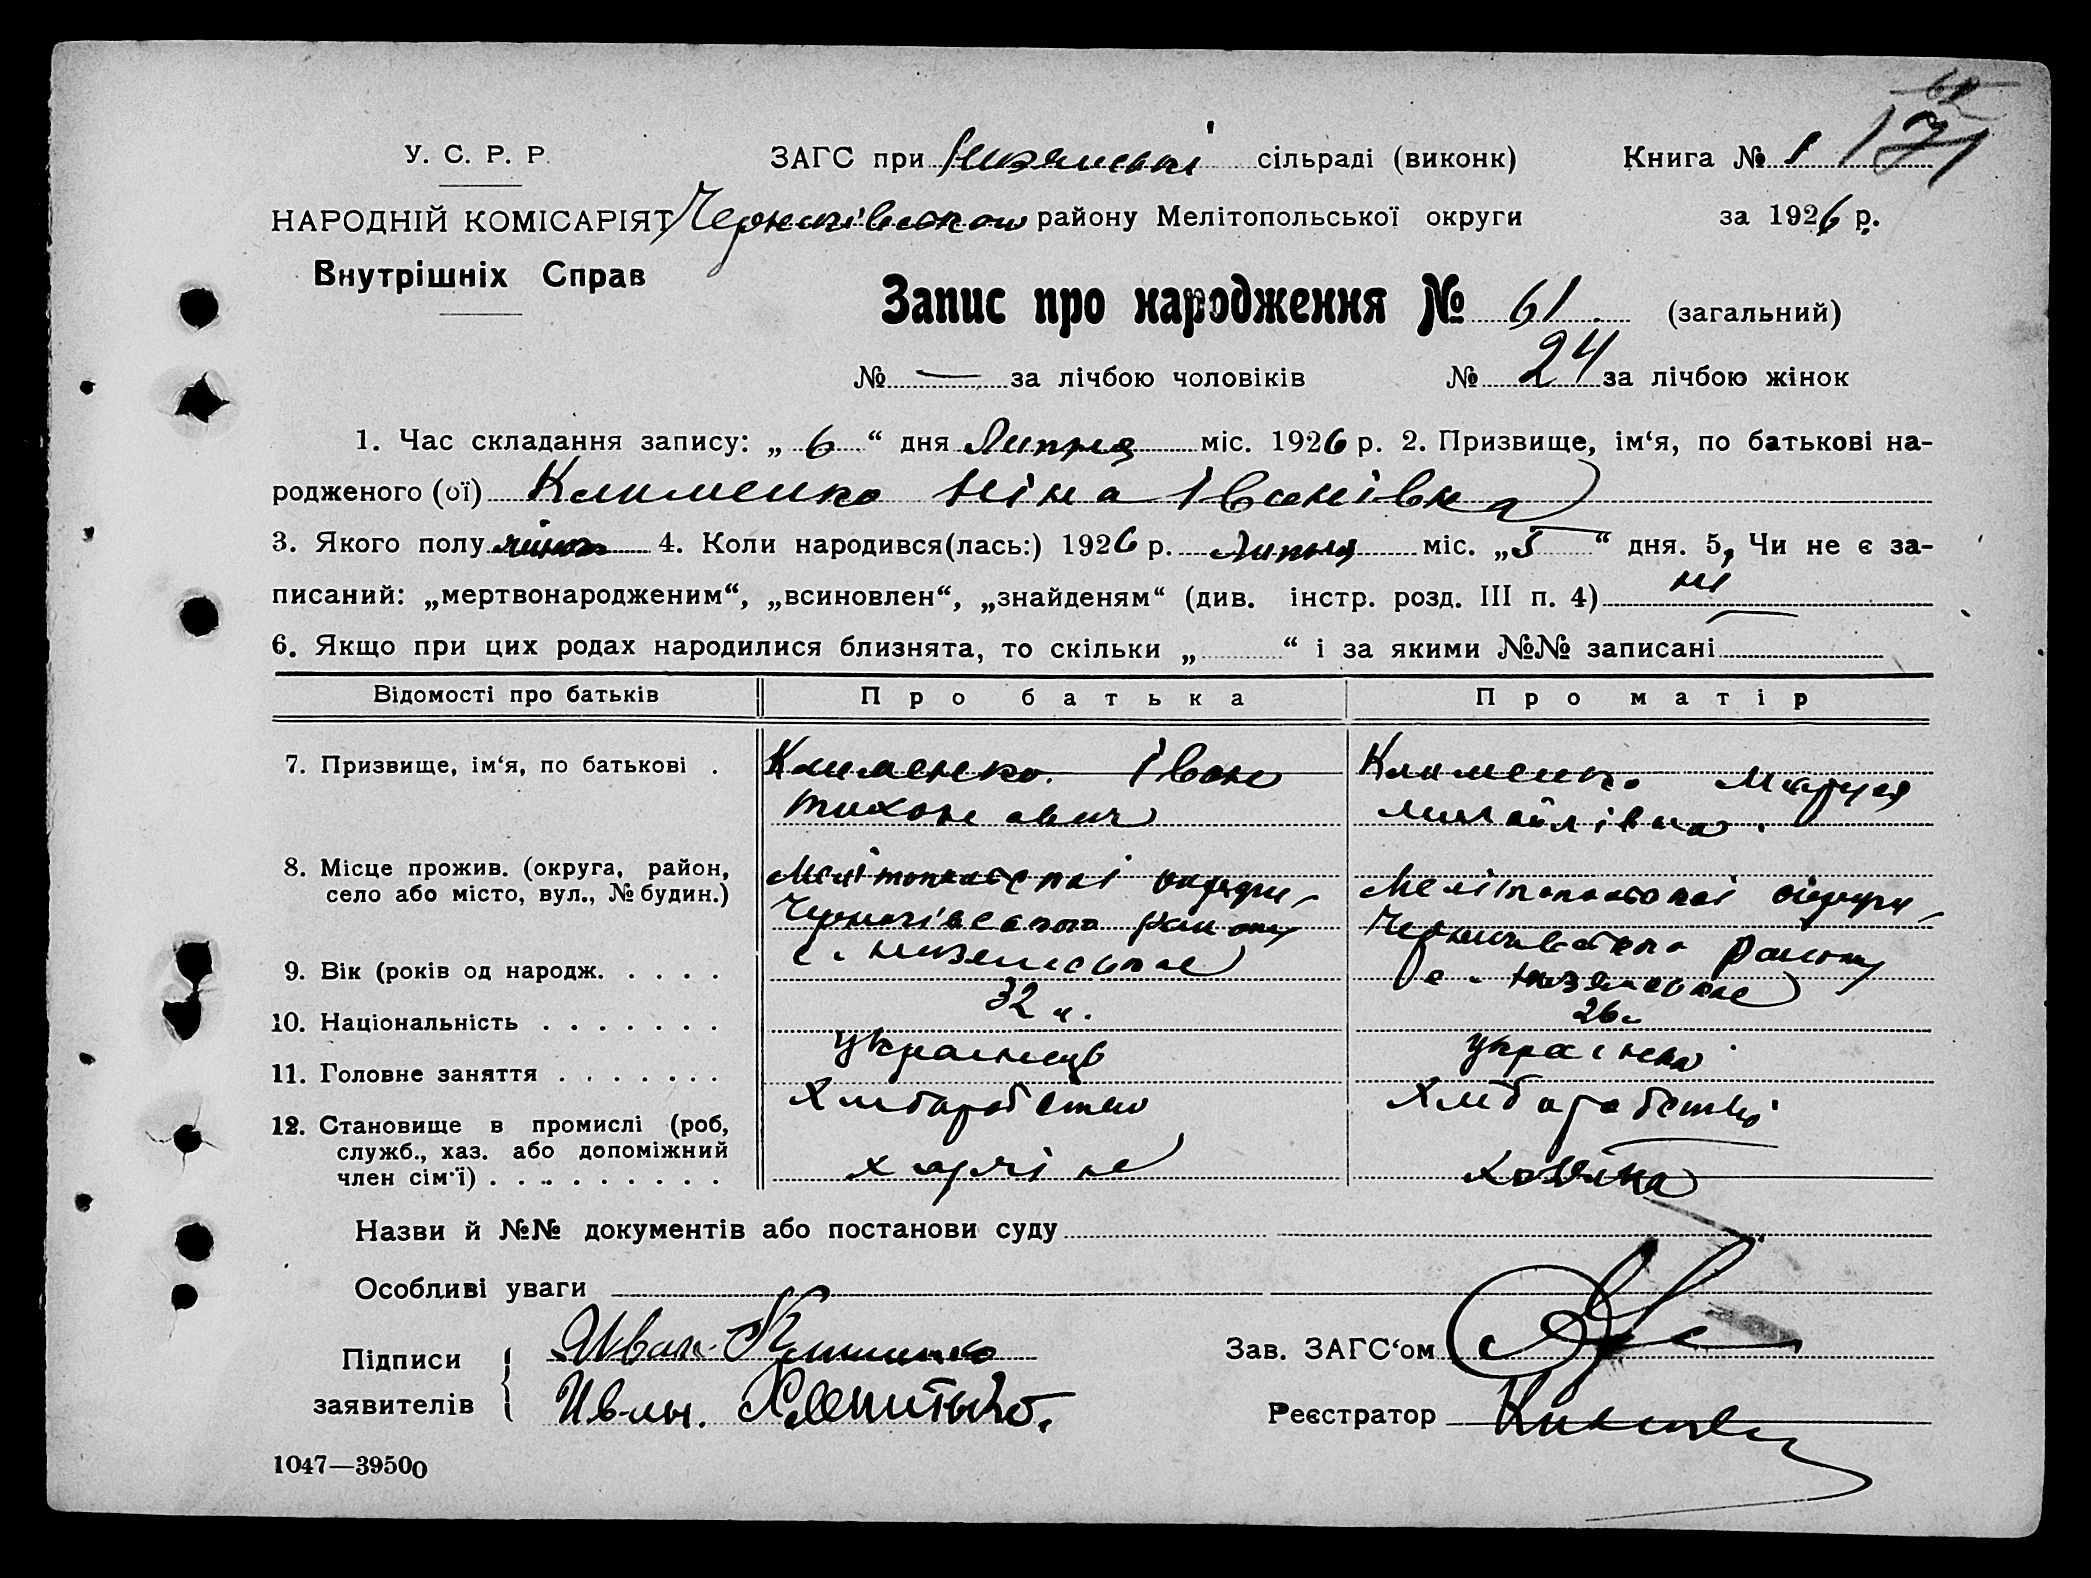 У. С. Р. Р.
НАРОДНІЙ КОМІСАРІЯТ
Внутрішніх Справ
ЗАГС при сільраді (виконк)
Чернігівському району Мелітопольської округи
Книга № 1 171
за 1926 р.
Запис про народження № 61 (загальний)
№ — за лічбою чоловіків № 24 за лічбою жінок
1. Час складання запису: „ 6 “ дня Липня міс. 1926 р. 2. Призвище, ім‘я, по батькові на-
родженого (ої) Клименко Ніна Іванівна
3. Якого полу жіноч 4. Коли народився(лась:) 1926 р. Липня міс. „ 5 “ дня. 5, Чи не є за-
писаний: „мертвонародженим“, „всиновлен“, „знайденям“ (див. інстр. розд. III п. 4) ні
6. Якщо при цих родах народилися близнята, то скільки „ “ і за якими №№ записані —
Відомості про батьків Про батька Про матір
7. Призвище, ім‘я, по батькові . Клименко Іван Клименко Мария
Тихонович Михайлівна
8. Місце прожив. (округа, район, Мелітопольскоі округи Мелітопольскоі округи
село або місто, вул., № будин.) Чернигівського району Чернигівського району
с. Низянське с. Низянське
9. Вік (років од народж. . . . . 32 26
10. Національність . . . . . . . українець українка
11. Головне заняття . . . . . . . Хліборобство Хліборобство
12. Становище в промислі (роб,
служб., хаз. або допоміжний
член сім‘ї) . . . . . . . . . хазяїн хазяйка
Назви й №№ документів або постанови суду
Особливі уваги
Підписи Иван Клименко
заявителів
Зав. ЗАГС‘ом
Реєстратор
1047—39500